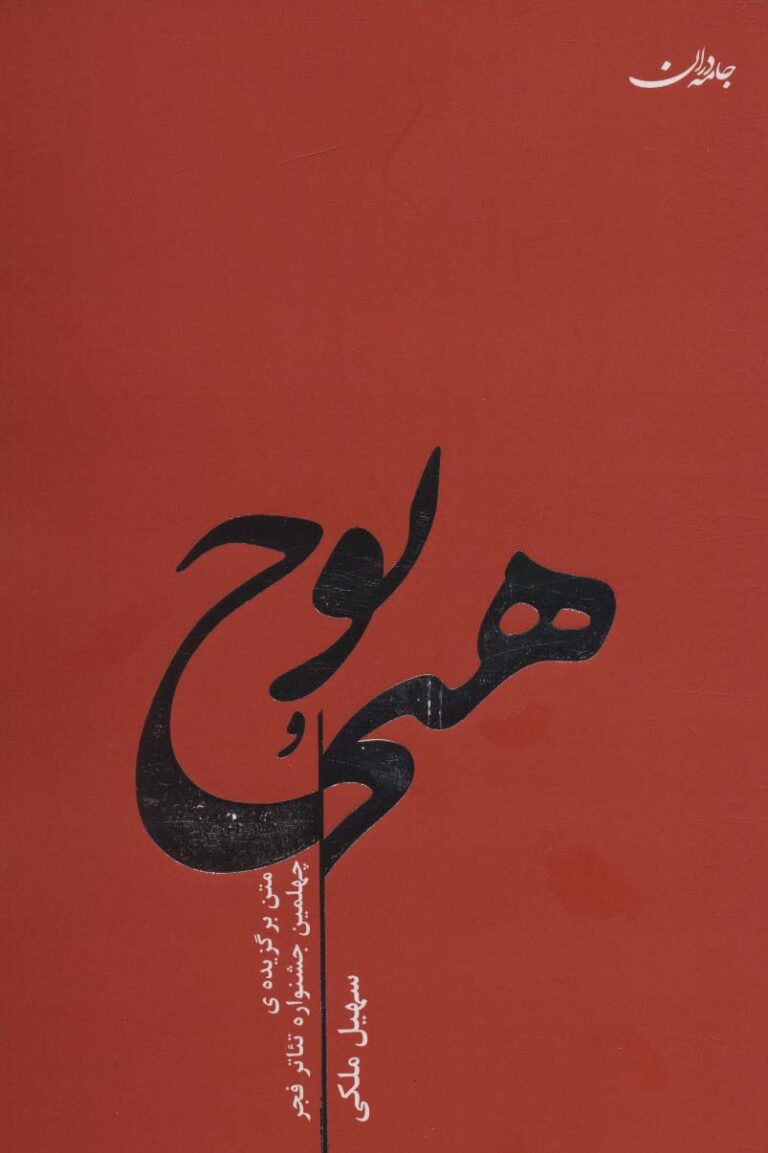 جامه‌دران
هیچ و پوچ
متن برگزیده‌ی
چهلمین جشنواره تئاتر فجر
سهیل ملکی